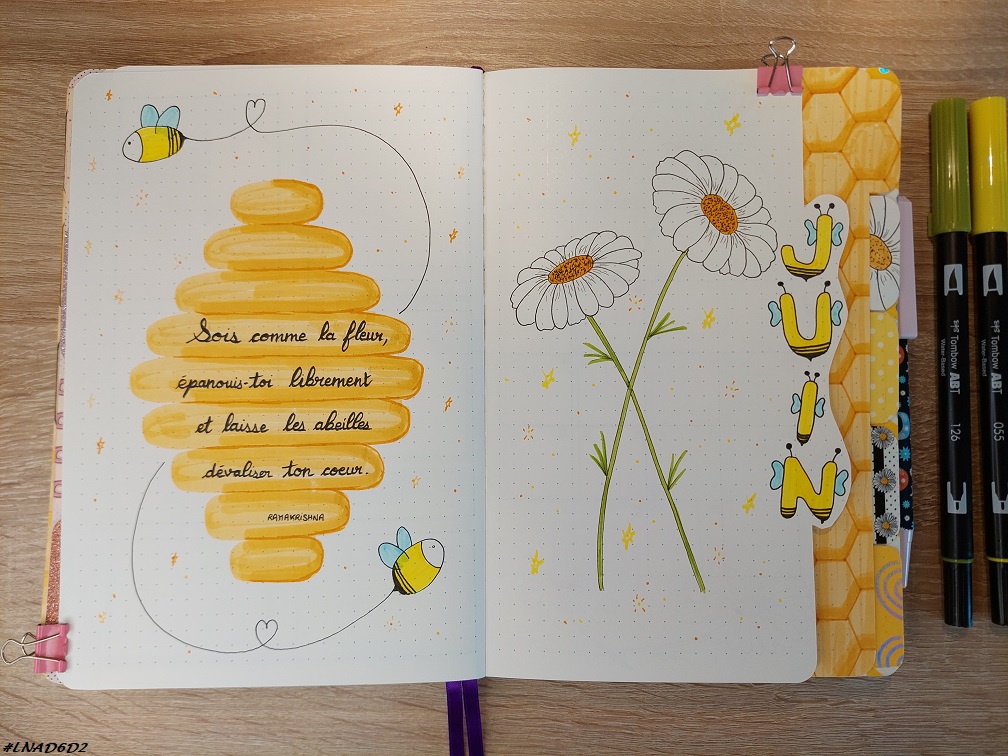 Sois comme la fleur,
épanouis-toi librement
et laisse les abeilles
dévaliser ton coeur.
RAMAKRISHNA
JUIN
Tombow ABT
Water-Based
126
Tombow ABT
Water-Based
055
#LNAD6D2